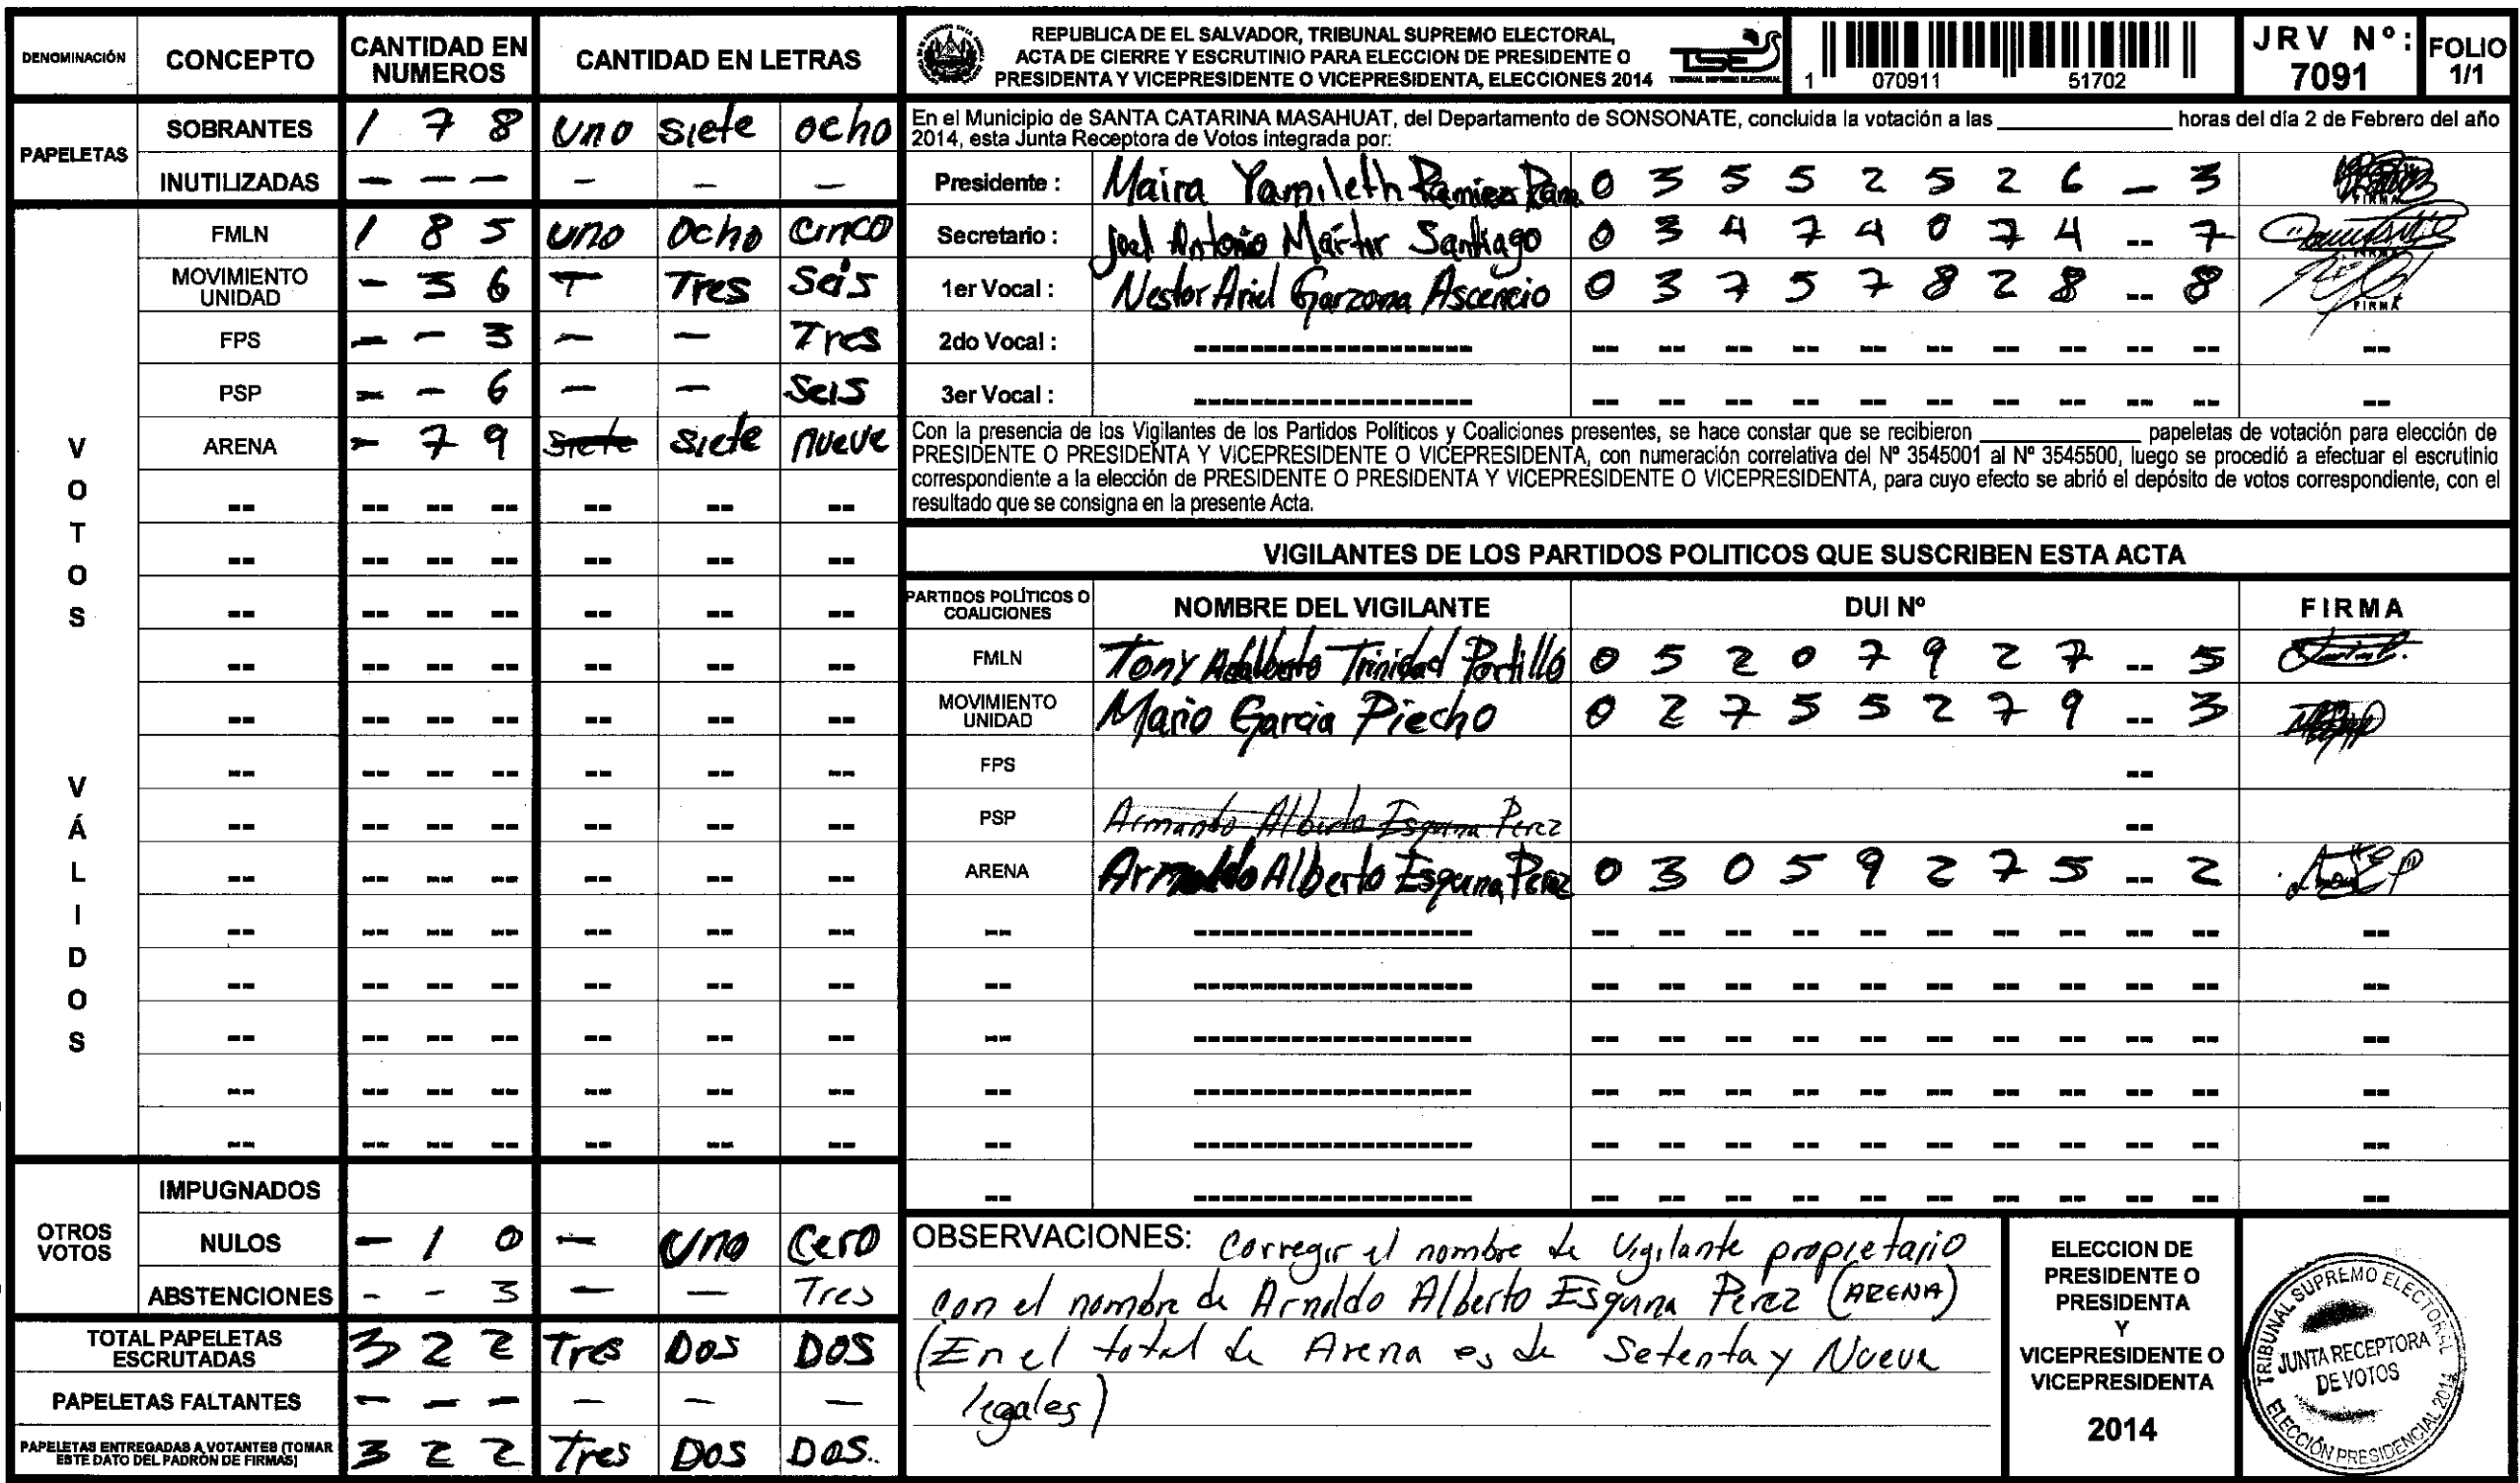 DENOMINACIÓN CONCEPTO CANTIDAD EN NUMEROS CANTIDAD EN LETRAS
PAPELETAS
SOBRANTES 1 7 8 uno siete ocho
INUTILIZADAS - - - - - -
VOTOS VÁLIDOS
FMLN 1 8 5 uno ocho cinco
MOVIMIENTO UNIDAD - 3 6 - Tres Seis
FPS - - 3 - - Tres
PSP - - 6 - - Seis
ARENA - 7 9 Siete siete nueve
-- -- -- -- -- -- --
-- -- -- -- -- -- --
-- -- -- -- -- -- --
-- -- -- -- -- -- --
-- -- -- -- -- -- --
-- -- -- -- -- -- --
-- -- -- -- -- -- --
-- -- -- -- -- -- --
-- -- -- -- -- -- --
-- -- -- -- -- -- --
-- -- -- -- -- -- --
-- -- -- -- -- -- --
-- -- -- -- -- -- --
OTROS VOTOS
IMPUGNADOS
NULOS - 1 0 - uno Cero
ABSTENCIONES - - 3 - - Tres
TOTAL PAPELETAS ESCRUTADAS 3 2 2 Tres DOS DOS
PAPELETAS FALTANTES - - - - - -
PAPELETAS ENTREGADAS A VOTANTES (TOMAR ESTE DATO DEL PADRÓN DE FIRMAS) 3 2 2 Tres DOS DOS.
REPUBLICA DE EL SALVADOR, TRIBUNAL SUPREMO ELECTORAL,
ACTA DE CIERRE Y ESCRUTINIO PARA ELECCION DE PRESIDENTE O
PRESIDENTA Y VICEPRESIDENTE O VICEPRESIDENTA, ELECCIONES 2014
TSE
TRIBUNAL SUPREMO ELECTORAL
1 070911 51702
JRV Nº: 7091
FOLIO 1/1
En el Municipio de SANTA CATARINA MASAHUAT, del Departamento de SONSONATE, concluida la votación a las ____ horas del día 2 de Febrero del año
2014, esta Junta Receptora de Votos integrada por:
Presidente : Maira Yamileth Ramirez 0 3 5 5 2 5 2 6 - 3 FIRMA
Secretario : Joel Antonio Martir Santiago 0 3 4 7 4 0 7 4 -- 7 FIRMA
1er Vocal : Nestor Ariel Garzona Ascencio 0 3 7 5 7 8 2 8 -- 8 FIRMA
2do Vocal : ------------------ -- -- -- -- -- -- -- -- -- -- --
3er Vocal : ------------------ -- -- -- -- -- -- -- -- -- -- --
Con la presencia de los Vigilantes de los Partidos Políticos y Coaliciones presentes, se hace constar que se recibieron ____ papeletas de votación para elección de
PRESIDENTE O PRESIDENTA Y VICEPRESIDENTE O VICEPRESIDENTA, con numeración correlativa del Nº 3545001 al Nº 3545500, luego se procedió a efectuar el escrutinio
correspondiente a la elección de PRESIDENTE O PRESIDENTA Y VICEPRESIDENTE O VICEPRESIDENTA, para cuyo efecto se abrió el depósito de votos correspondiente, con el
resultado que se consigna en la presente Acta.
VIGILANTES DE LOS PARTIDOS POLITICOS QUE SUSCRIBEN ESTA ACTA
PARTIDOS POLÍTICOS O COALICIONES NOMBRE DEL VIGILANTE DUI Nº FIRMA
FMLN Tony Adalberto Trinidad Portillo 0 5 2 0 7 9 2 7 -- 5
MOVIMIENTO UNIDAD Mario Garcia Piecho 0 2 7 5 5 2 7 9 -- 3
FPS --
PSP Armando Alberto Esquina Perez --
ARENA Arnoldo Alberto Esquina Perez 0 3 0 5 9 2 7 5 -- 2
-- ------------------ -- -- -- -- -- -- -- -- -- -- --
-- ------------------ -- -- -- -- -- -- -- -- -- -- --
-- ------------------ -- -- -- -- -- -- -- -- -- -- --
-- ------------------ -- -- -- -- -- -- -- -- -- -- --
-- ------------------ -- -- -- -- -- -- -- -- -- -- --
-- ------------------ -- -- -- -- -- -- -- -- -- -- --
OBSERVACIONES: Corregir el nombre de Vigilante propietario
con el nombre de Arnoldo Alberto Esquina Perez (ARENA)
(En el total de Arena es de Setenta y Nueve
legales)
ELECCION DE
PRESIDENTE O
PRESIDENTA
Y
VICEPRESIDENTE O
VICEPRESIDENTA
2014
TRIBUNAL SUPREMO ELECTORAL
JUNTA RECEPTORA
DE VOTOS
ELECCIÓN PRESIDENCIAL 2014